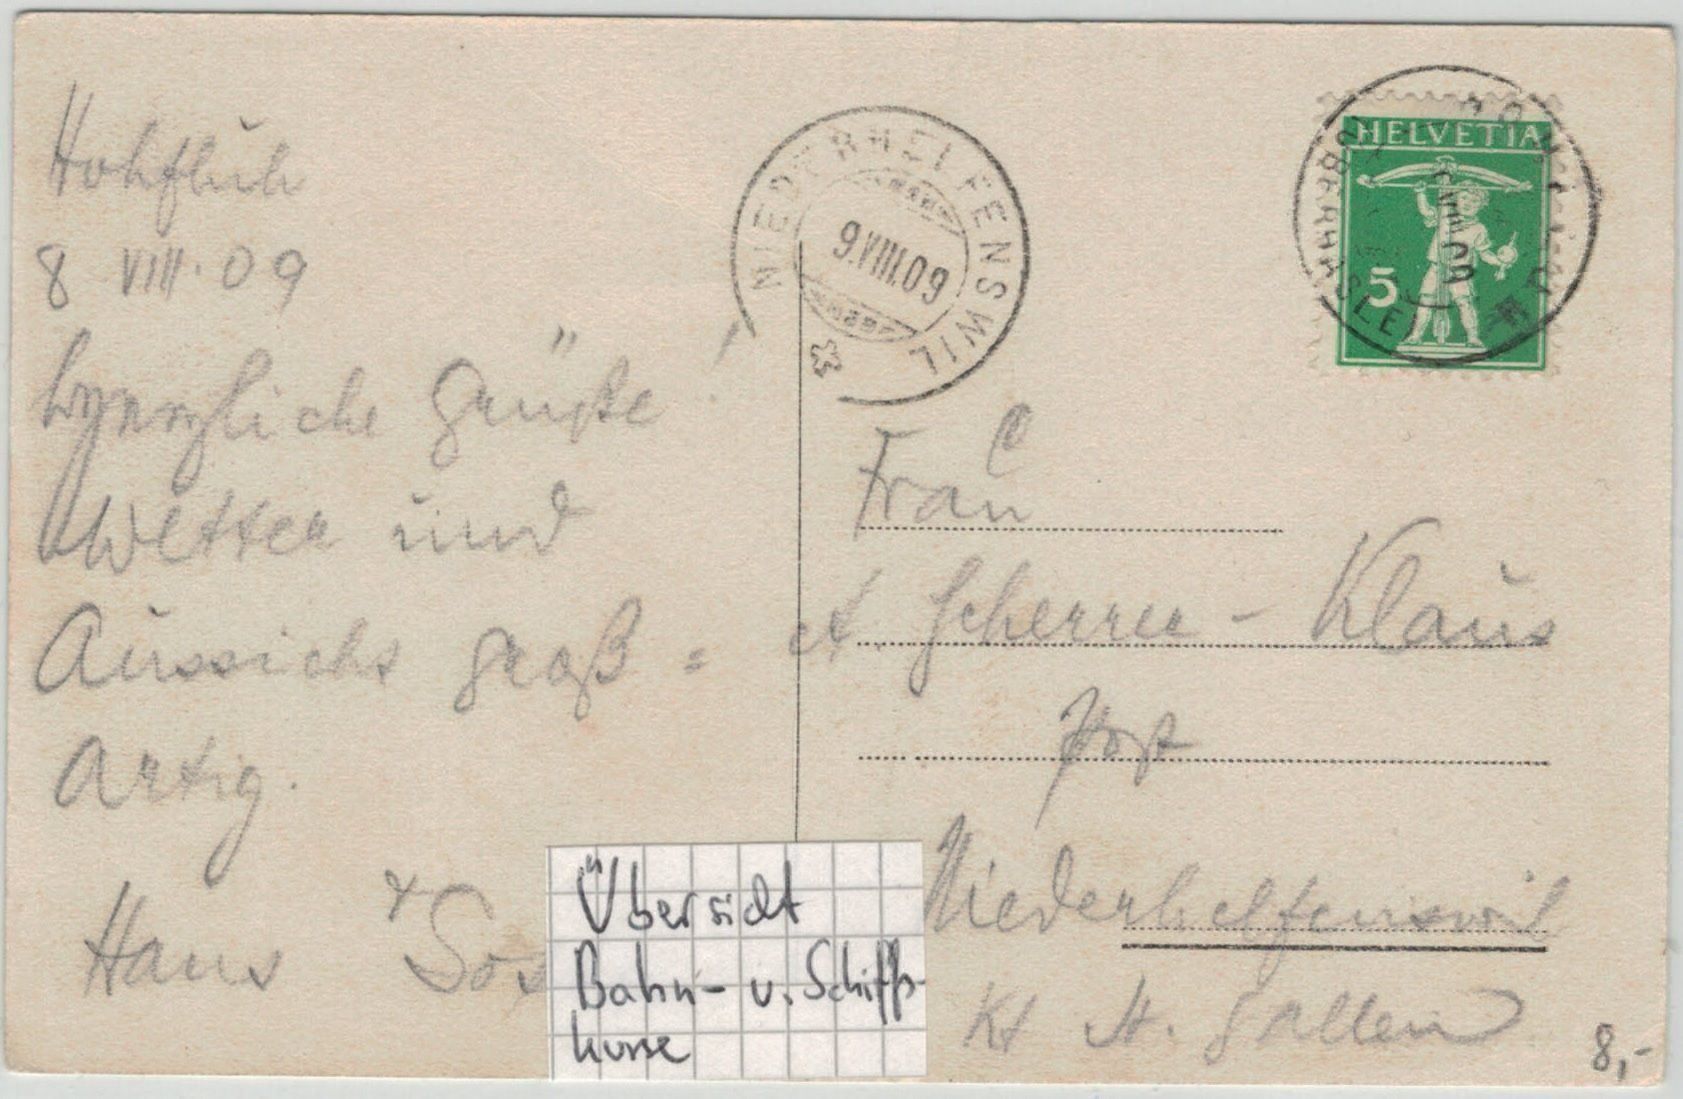 Hohfluh
8 VIII. 09
Herzliche Grüße!
Wetter und
Aussicht groß =
artig.
Hans &
NIEDERHELFENSWIL
9.VIII.09
HELVETIA
5
Frau
A. Scherrer - Klaus
Post
Niederhelfenswil
Kt St. Gallen
Übersicht
Bahn- u. Schiffs-
kurse
8,-